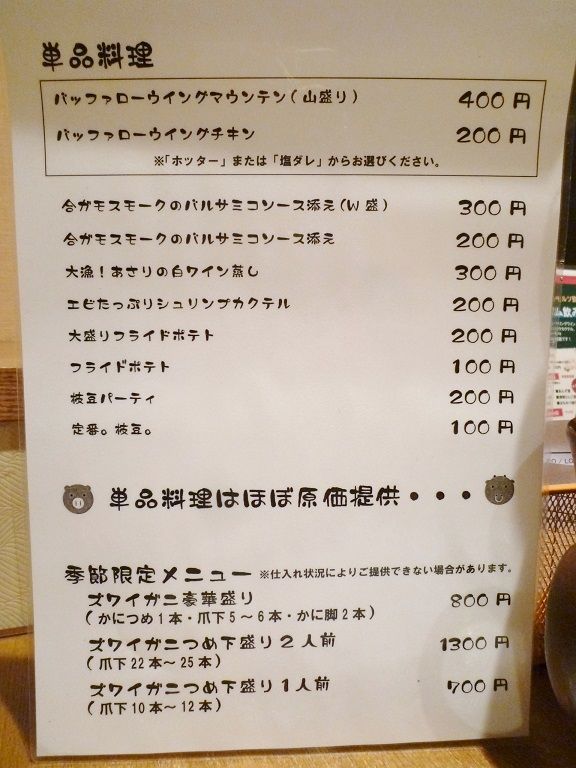 単品料理
バッファローウイングマウンテン(山盛り) 400円
バッファローウイングチキン 200円
※「ホッター」または「塩ダレ」からお選びください。
合かモスモークのバルサミコソース添え(W盛) 300円
合かモスモークのバルサミコソース添え 200円
大漁!あさりの白ワイン蒸し 300円
エビたっぷりシュリンプカクテル 200円
大盛りフライドポテト 200円
フライドポテト 100円
枝豆パーティ 200円
定番。枝豆。 100円
単品料理はほぼ原価提供・・・
季節限定メニュー ※仕入れ状況によりご提供できない場合があります。
ズワイガニ豪華盛り 800円
(かにつめ1本・爪下5~6本・かに脚2本)
ズワイガニつめ下盛り2人前 1300円
(爪下22本~25本)
ズワイガニつめ下盛り1人前 700円
(爪下10本~12本)